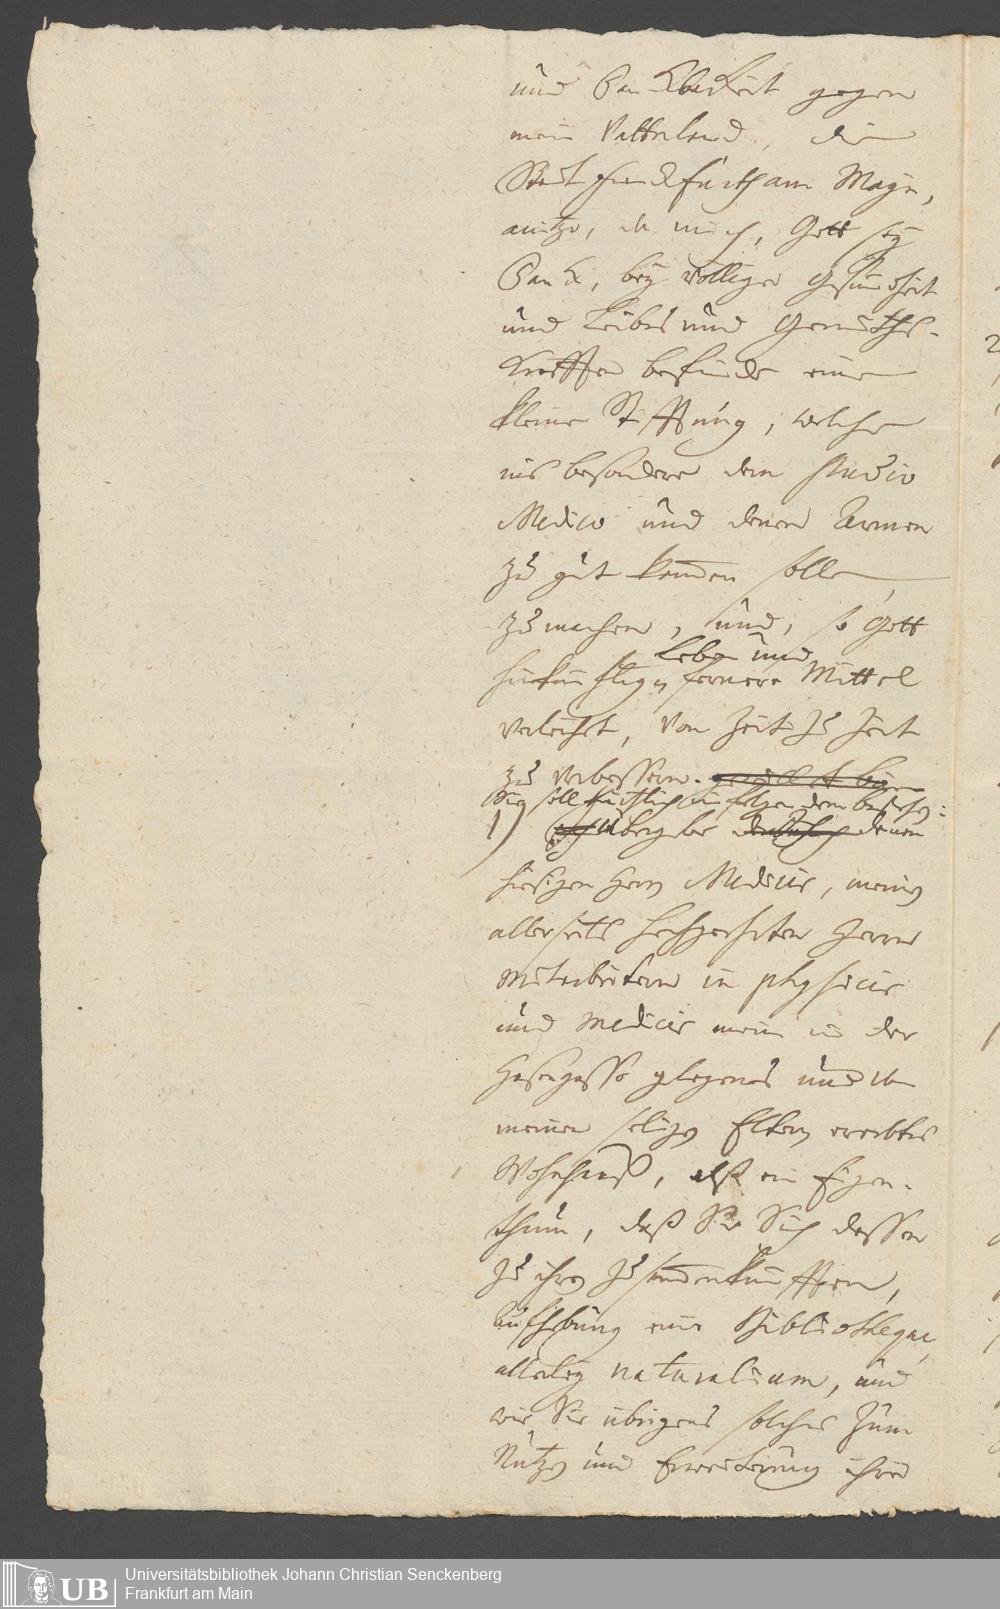 und Danckbarkeit gegen
mein Vatterland, die
Stadt Franckfurth am Mayn,
anitzo, da mich, Gott sey
Danck, bey völliger Gesundheit
und Leibes und Gemüths-
Kräfften befinde eine
kleine Stifftung, welche
ins besondere dem studio
Medico und denen Armen
zu gut kommen solle,
zu machen, und, so Gott
Leben und
hinkünftig fernere Mittel
verleihet, von Zeit zu Zeit
zu verbessern.
Sie soll kürtzlich in folgendem bestehen:
1) übergebe denen
hiesigen Herrn Medicis, meinen
allerseits hochgeehrten Herrn
Mitarbeitern in physicis
und Medicis mein in der
Hasengasse gelegenes und von
meinen seligen Eltern ererbtes
Wohnhauß, alß ein Eigen-
thum, daß Sie Sich dessen
zu ihren Zusammenkünfften,
Aufhebung einer Bibliotheque,
allerley naturalium, und
wie Sie übrigens solches zum
Nutzen und Erweiterung ihrer
UB
Universitätsbibliothek Johann Christian Senckenberg
Frankfurt am Main